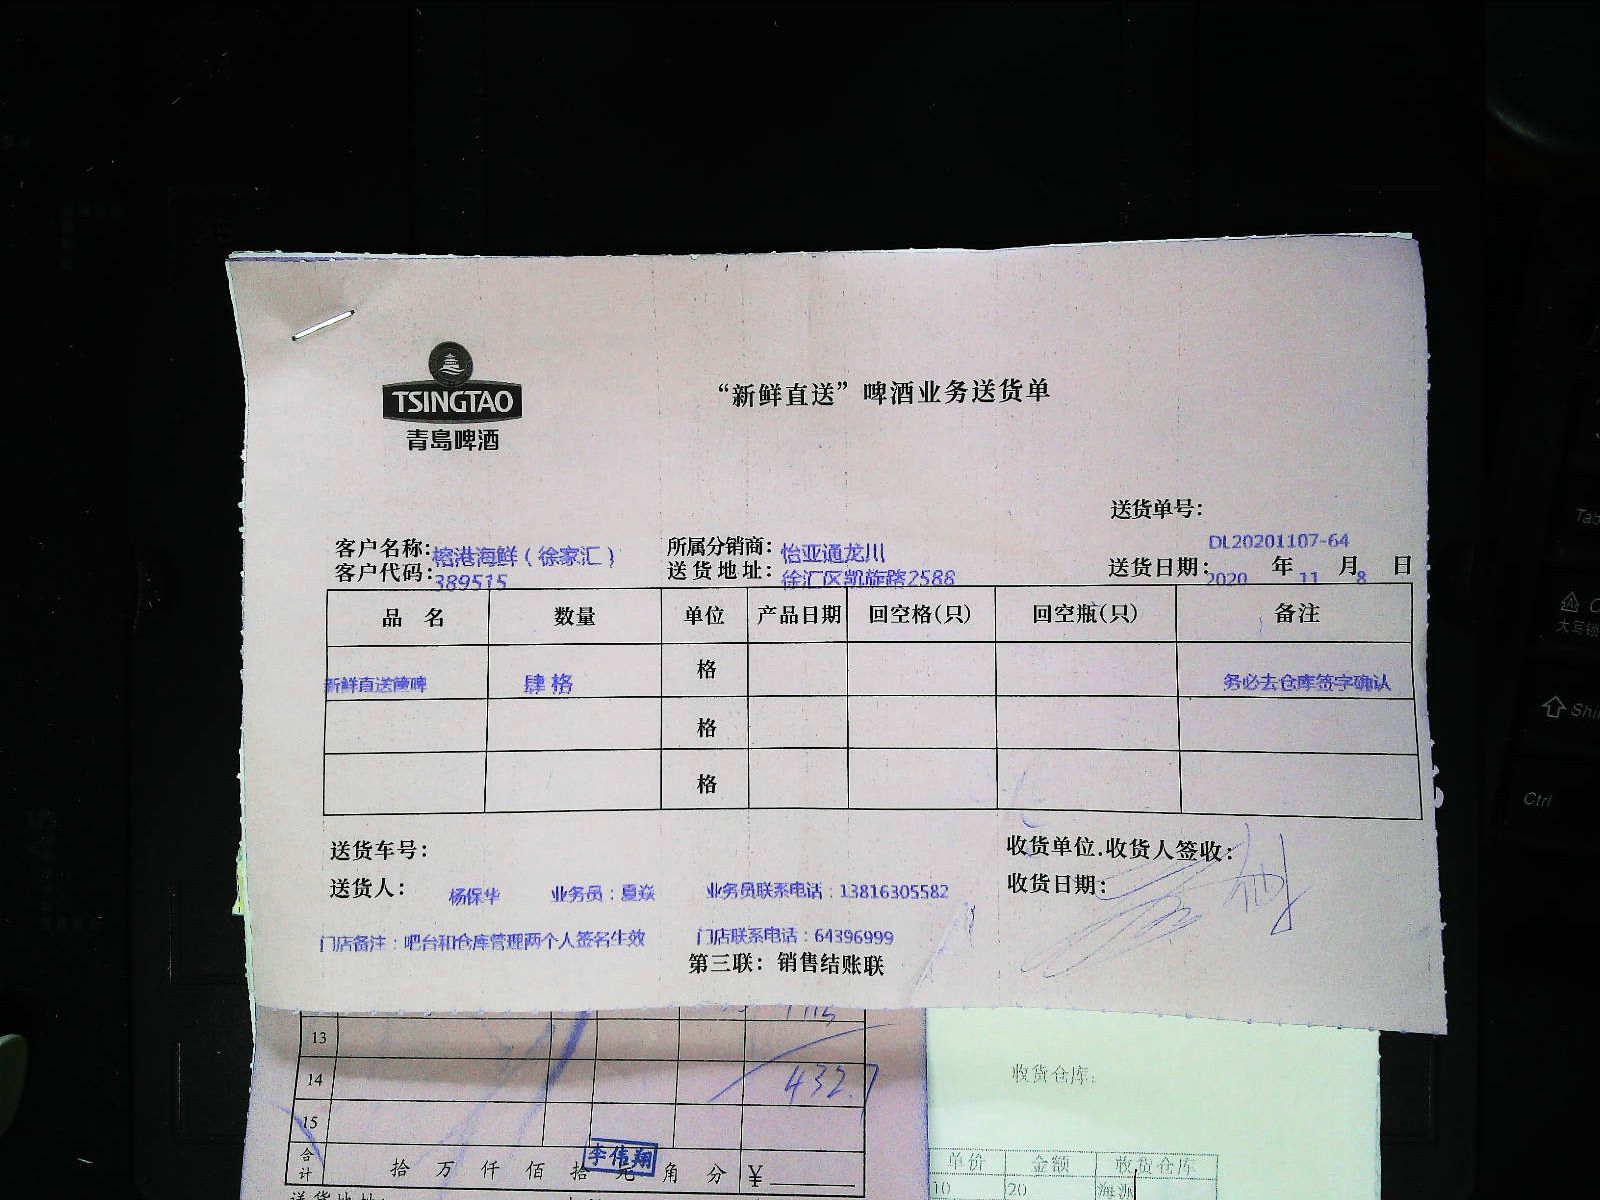 TSINGTAO
青岛啤酒
“新鲜直送”啤酒业务送货单
送货单号：
DL20201107-64
客户名称：榕港海鲜（徐家汇） 所属分销商：怡亚通龙川
客户代码：389515 送货地址：徐汇区凯旋路2588 送货日期：2020 年 11 月 8 日
品 名 数量 单位 产品日期 回空格(只) 回空瓶(只) 备注
新鲜直送篚啤 肆格 格 务必去仓库签字确认
格
格
送货车号： 收货单位.收货人签收：
送货人： 杨保华 业务员：夏焱 业务员联系电话：13816305582 收货日期：
门店备注：吧台和仓库管理两个人签名生效 门店联系电话：64396999
第三联：销售结账联
13
14 432.7
15
收货仓库：
合计 拾 万 仟 佰 拾 元 角 分 ￥
李伟翔
单价 金额 收货仓库
10 20 海派
Tab
大写锁
Shi
Ctrl